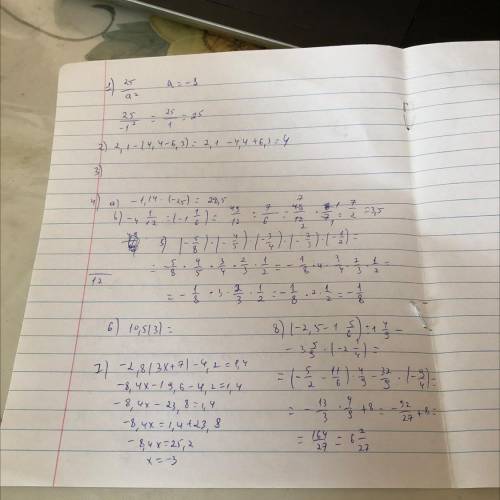 1) 25/a² a = -1
25/-1² = 25/1 = 25
2) 2,1-(4,4-6,3) = 2,1-4,4+6,3 = 4
3)
4) а) -1,14·(-25) = 28,5
б) -4 1/12 : (-1 1/6) = 49/12 : 7/6 = 49/12 · 6/7 = 7/2 = 3,5
5) (-5/8)·(-4/5)·(-3/4)·(-2/3)·(-1/2) =
= 5/8 · 4/5 · 3/4 · 2/3 · 1/2 = -1/8 · 4 · 3/4 · 2/3 · 1/2 =
12
= -1/8 · 3 · 2/3 · 1/2 = -1/8 · 2 · 1/2 = -1/8
6) 10,5(3) =
7) -2,8(3x+7)-4,2 = 1,4
-8,4x-19,6-4,2 = 1,4
-8,4x-23,8 = 1,4
-8,4x = 1,4+23,8
-8,4x = 25,2
x = -3
8) (-2,5-1 5/6) : 1 4/5 -
- 3 5/9 · (-2 1/4) =
= (-5/2 - 11/6) · 4/9 - 32/9 · (-9/4) =
= -13/3 · 4/9 + 8 = -52/27 + 8 =
= 164/27 = 6 2/27